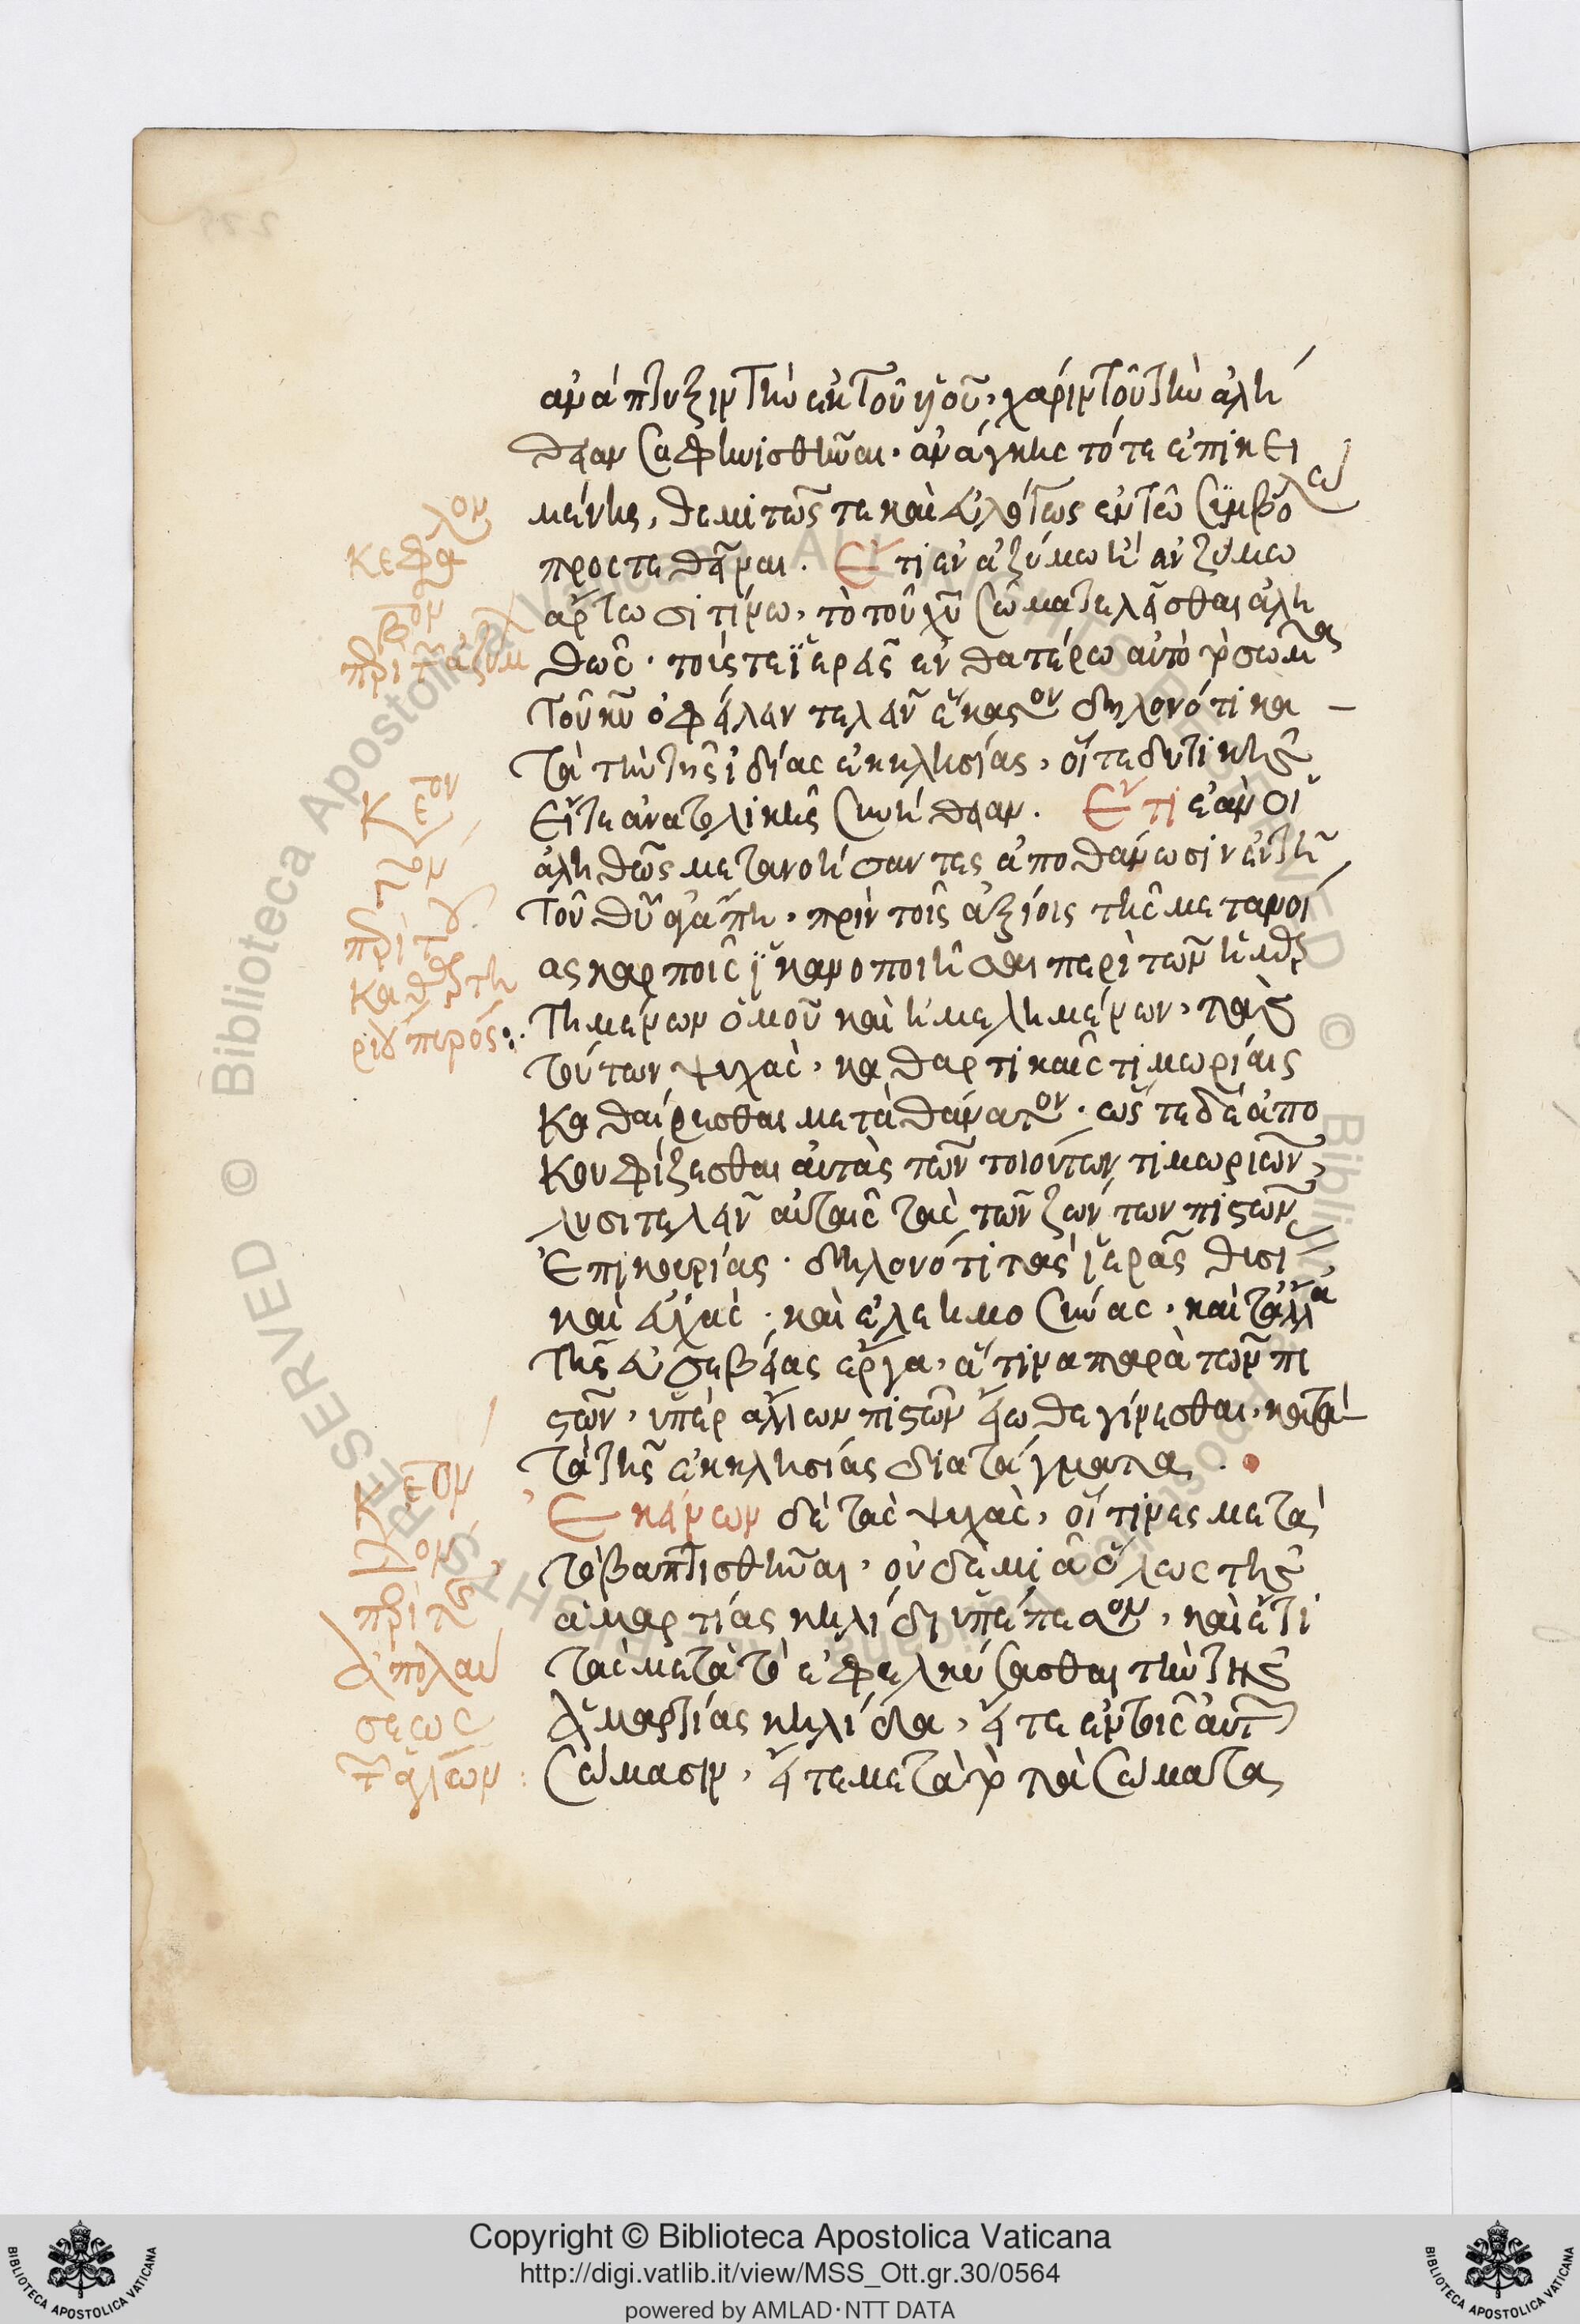 ἀνάπτυξιν τὴν ἐκ τοῦ υἱοῦ, χάριν τοῦ τὴν ἀλή
θειαν σαφηνισθῆναι, ἀνάγκης τότε ἐπικει
μένης, θεμιτῶς τε καὶ εὐλόγως ἐν τῶ συμβόλω
προστεθεῖναι. Ἔτι ἐν ἀζύμω ἢ ἐνζύμω
ἄρτω σιτίνω, τὸ τοῦ χυ σῶμα τελεῖσθαι ἀλη
θῶς. τούς τε ἱερεῖς ἐν θατέρω αὐτὸ τὸ σῶμα
τοῦ κυ ὀφείλειν τελεῖν ἕκαστον δηλονότι κα
τὰ τὴν τῆς ἰδίας ἐκκλησίας, εἴτε δυτικῆς
εἴτε ἀνατολικῆς συνήθειαν. Ἔτι ἐὰν οἱ
ἀληθῶς μετανοήσαντες ἀποθάνωσιν ἐν τῆ
τοῦ θυ ἀγάπη, πρὶν τοῖς ἀξίοις τῆς μετανοί
ας καρποῖς ἱκανοποιῆσαι περὶ τῶν ἡμαρ
τημένων ὁμοῦ καὶ ἠμελημένων, τὰς
τούτων ψυχὰς, καθαρτικαῖς τιμωρίαις
καθαίρεσθαι μετὰ θάνατον. ὥστε δὲ ἀπο
κουφίζεσθαι αὐτὰς τῶν τοιούτων τιμωριῶν,
λυσιτελεῖν αὐταῖς τὰς τῶν ζώντων πιστῶν
ἐπικουρίας. δηλονότι τὰς ἱερὰς θυσί
καὶ εὐχὰς. καὶ ἐλεημοσύνας, καὶ τἄλλα
τῆς εὐσεβείας ἔργα, ἅτινα παρὰ τῶν πι
στῶν, ὑπὲρ ἄλλων πιστῶν εἴωθε γίνεσθαι, κατὰ
τὰ τῆς ἐκκλησίας διατάγματα.
Ἐκείνων δὲ τὰς ψυχὰς, οἵτινες μετὰ
τὸ βαπτισθῆναι, οὐδεμιᾶ ὅλως τῆς
ἁμαρτίας κηλίδι ὑπέπεσον, καὶ ἔτι
τὰς μετὰ τὸ ἐφελκύσασθαι τὴν τῆς
ἁμαρτίας κηλίδα, εἴτε ἐν τοῖς αὐτ
σώμασιν, εἴτε μετὰ τὸ τὰ σώματα
κεφα λον
βον
περὶ τῶν ἀζύμ
κ ετον
περὶ τοῦ
καθαρτη
ρίου πυρός:
κ ετον
περὶ τῆς
ἀπολαύ
σεως
τῶν ἁγίων:
© Biblioteca Apostolica Vaticana ALL RIGHTS RESERVED
Copyright © Biblioteca Apostolica Vaticana
http://digi.vatlib.it/view/MSS_Ott.gr.30/0564
powered by AMLAD·NTT DATA
BIBLIOTECA APOSTOLICA VATICANA
BIBLIOTECA APOSTOLICA VATICANA